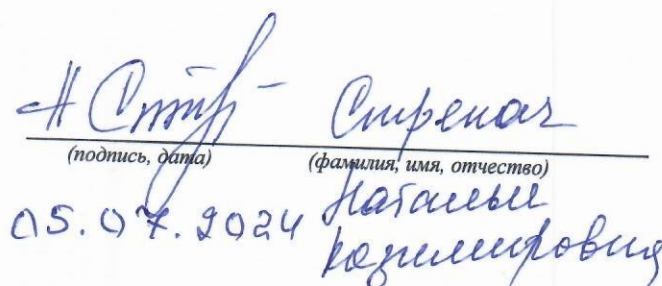 Стреноч
(подпись, дата) (фамилия, имя, отчество)
05.07.2024 Наталья
Казимировна